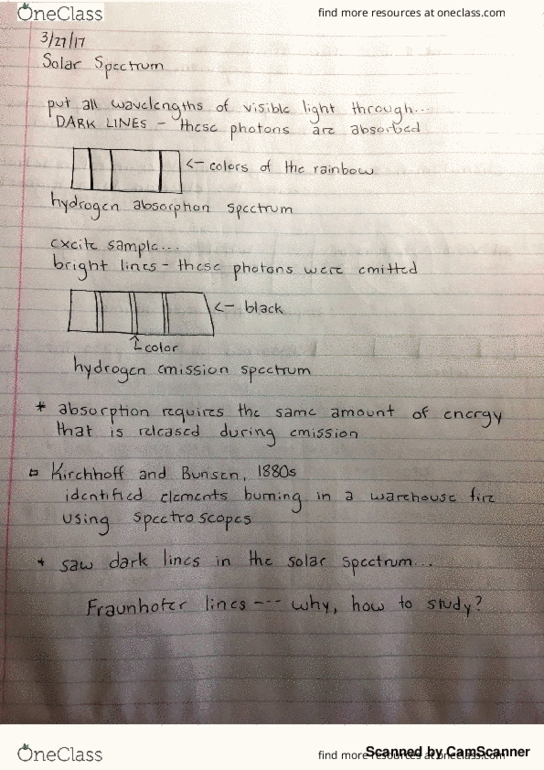 OneClass
find more resources at oneclass.com
3/27/17
Solar Spectrum
put all wavelengths of visible light through...
DARK LINES - these photons are absorbed
<- colors of the rainbow
hydrogen absorption spectrum
excite sample...
bright lines - these photons were emitted
<- black
color
hydrogen emission spectrum
* absorption requires the same amount of energy
that is released during emission
Kirchhoff and Bunsen, 1880s
identified elements burning in a warehouse fire
using spectroscopes
* saw dark lines in the solar spectrum...
Fraunhofer lines --- why, how to study?
OneClass
find more resources at oneclass.com
Scanned by CamScanner